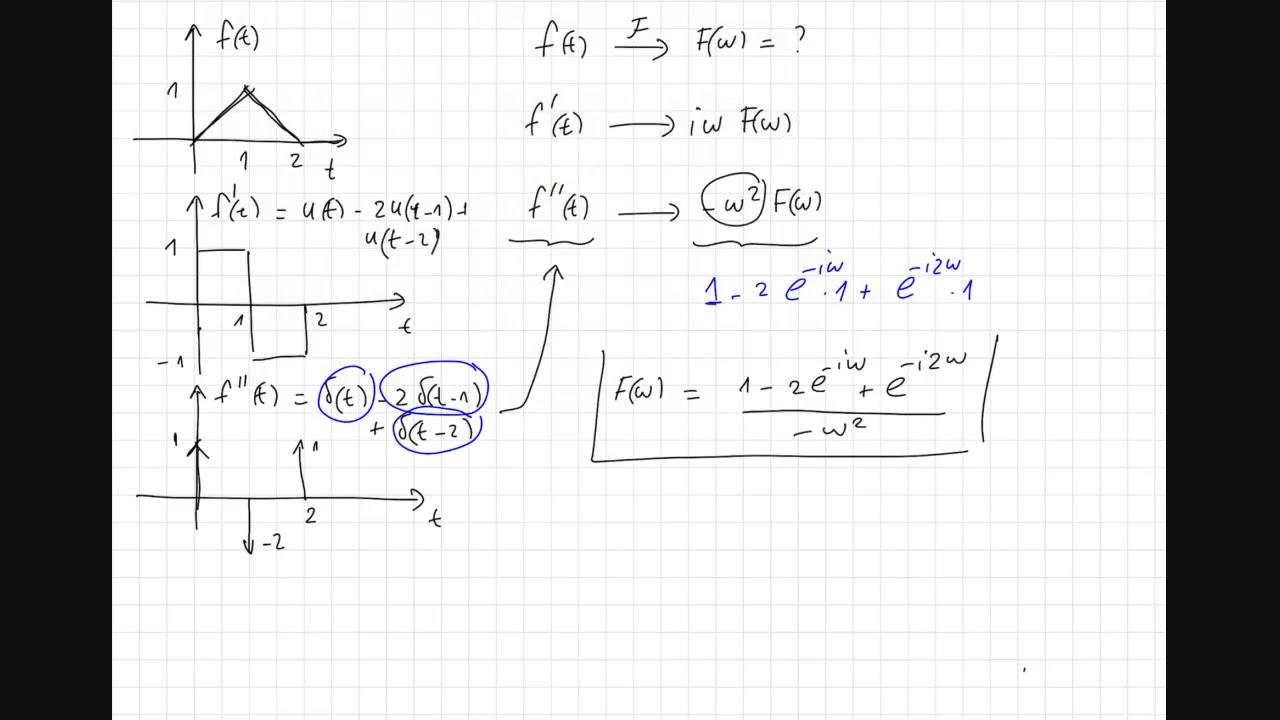 f(t)
1
1 2 t
f'(t) = u(t) - 2u(t-1) +
u(t-2)
1
1 2 t
-1
f''(t) = δ(t) - 2 δ(t-1)
+ δ(t-2)
1 1
2 t
-2
f(t) —ℱ→ F(ω) = ?
f'(t) ⟶ iω F(ω)
f''(t) ⟶ -ω² F(ω)
1 - 2 e^{-iω} · 1 + e^{-i2ω} · 1
F(ω) = \frac{1 - 2e^{-iω} + e^{-i2ω}}{-ω²}